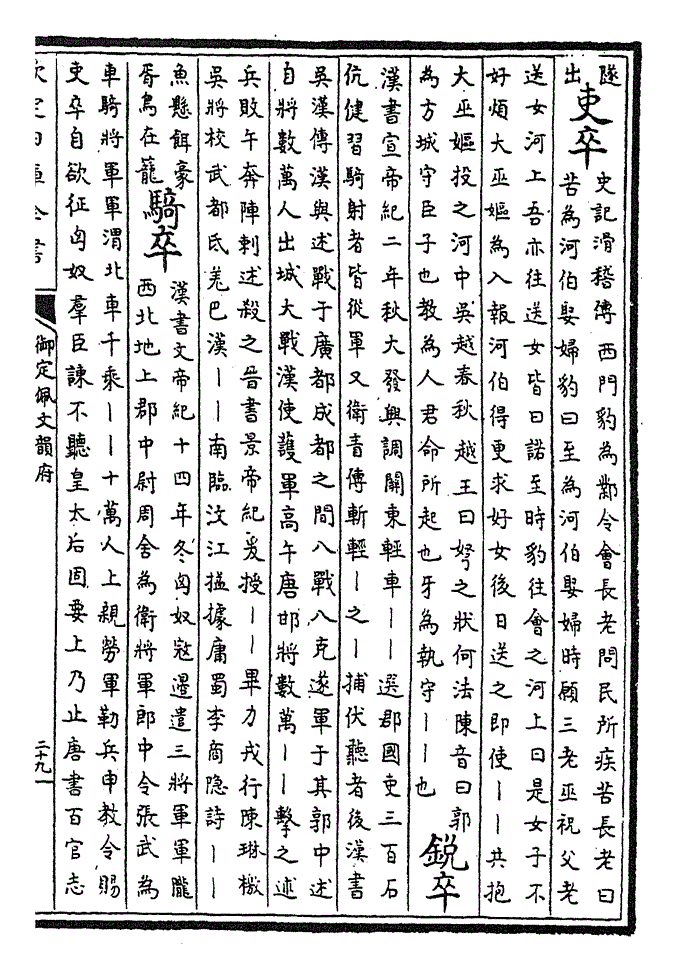 隧
出
吏卒
史記滑稽傳西門豹為鄴令會長老問民所疾苦長老曰
苦為河伯娶婦豹曰至為河伯娶婦時願三老巫祝父老
送女河上吾亦往送女皆曰諾至時豹往會之河上曰是女子不
好煩大巫嫗為入報河伯得更求好女後日送之即使〡〡共抱
大巫嫗投之河中吳越春秋越王曰弩之狀何法陳音曰郭
為方城守臣子也教為人君命所起也牙為執守〡〡也
銳卒
漢書宣帝紀二年秋大發興調關東輕車〡〡選郡國吏三百石
伉健習騎射者皆從軍又衛青傳斬輕〡之〡捕伏聽者後漢書
吳漢傳漢與述戰于廣都成都之間八戰八克遂軍于其郭中述
自將數萬人出城大戰漢使護軍高午唐邯將數萬〡〡擊之述
兵敗午奔陣刺述殺之晉書景帝紀爰授〡〡畢力戎行陳琳檄
吳將校武都氐羌巴漢〡〡南臨汶江搤據庸蜀李商隱詩〡〡
魚懸餌豪
胥鳥在籠
騎卒
漢書文帝紀十四年冬匈奴寇邊遣三將軍軍隴
西北地上郡中尉周舍為衛將軍郎中令張武為
車騎將軍軍渭北車千乘〡〡十萬人上親勞軍勒兵申教令賜
吏卒自欲征匈奴羣臣諫不聽皇太后固要上乃止唐書百官志
欽定四庫全書
御定佩文韻府
二十九